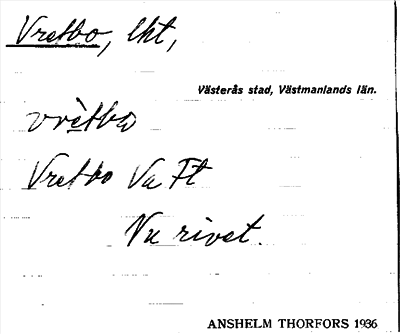 Vretbo, lht,
Västerås stad, Västmanlands län.
vrètbo
Vretbo Va Ft
Nu rivet.
ANSHELM THORFORS 1936